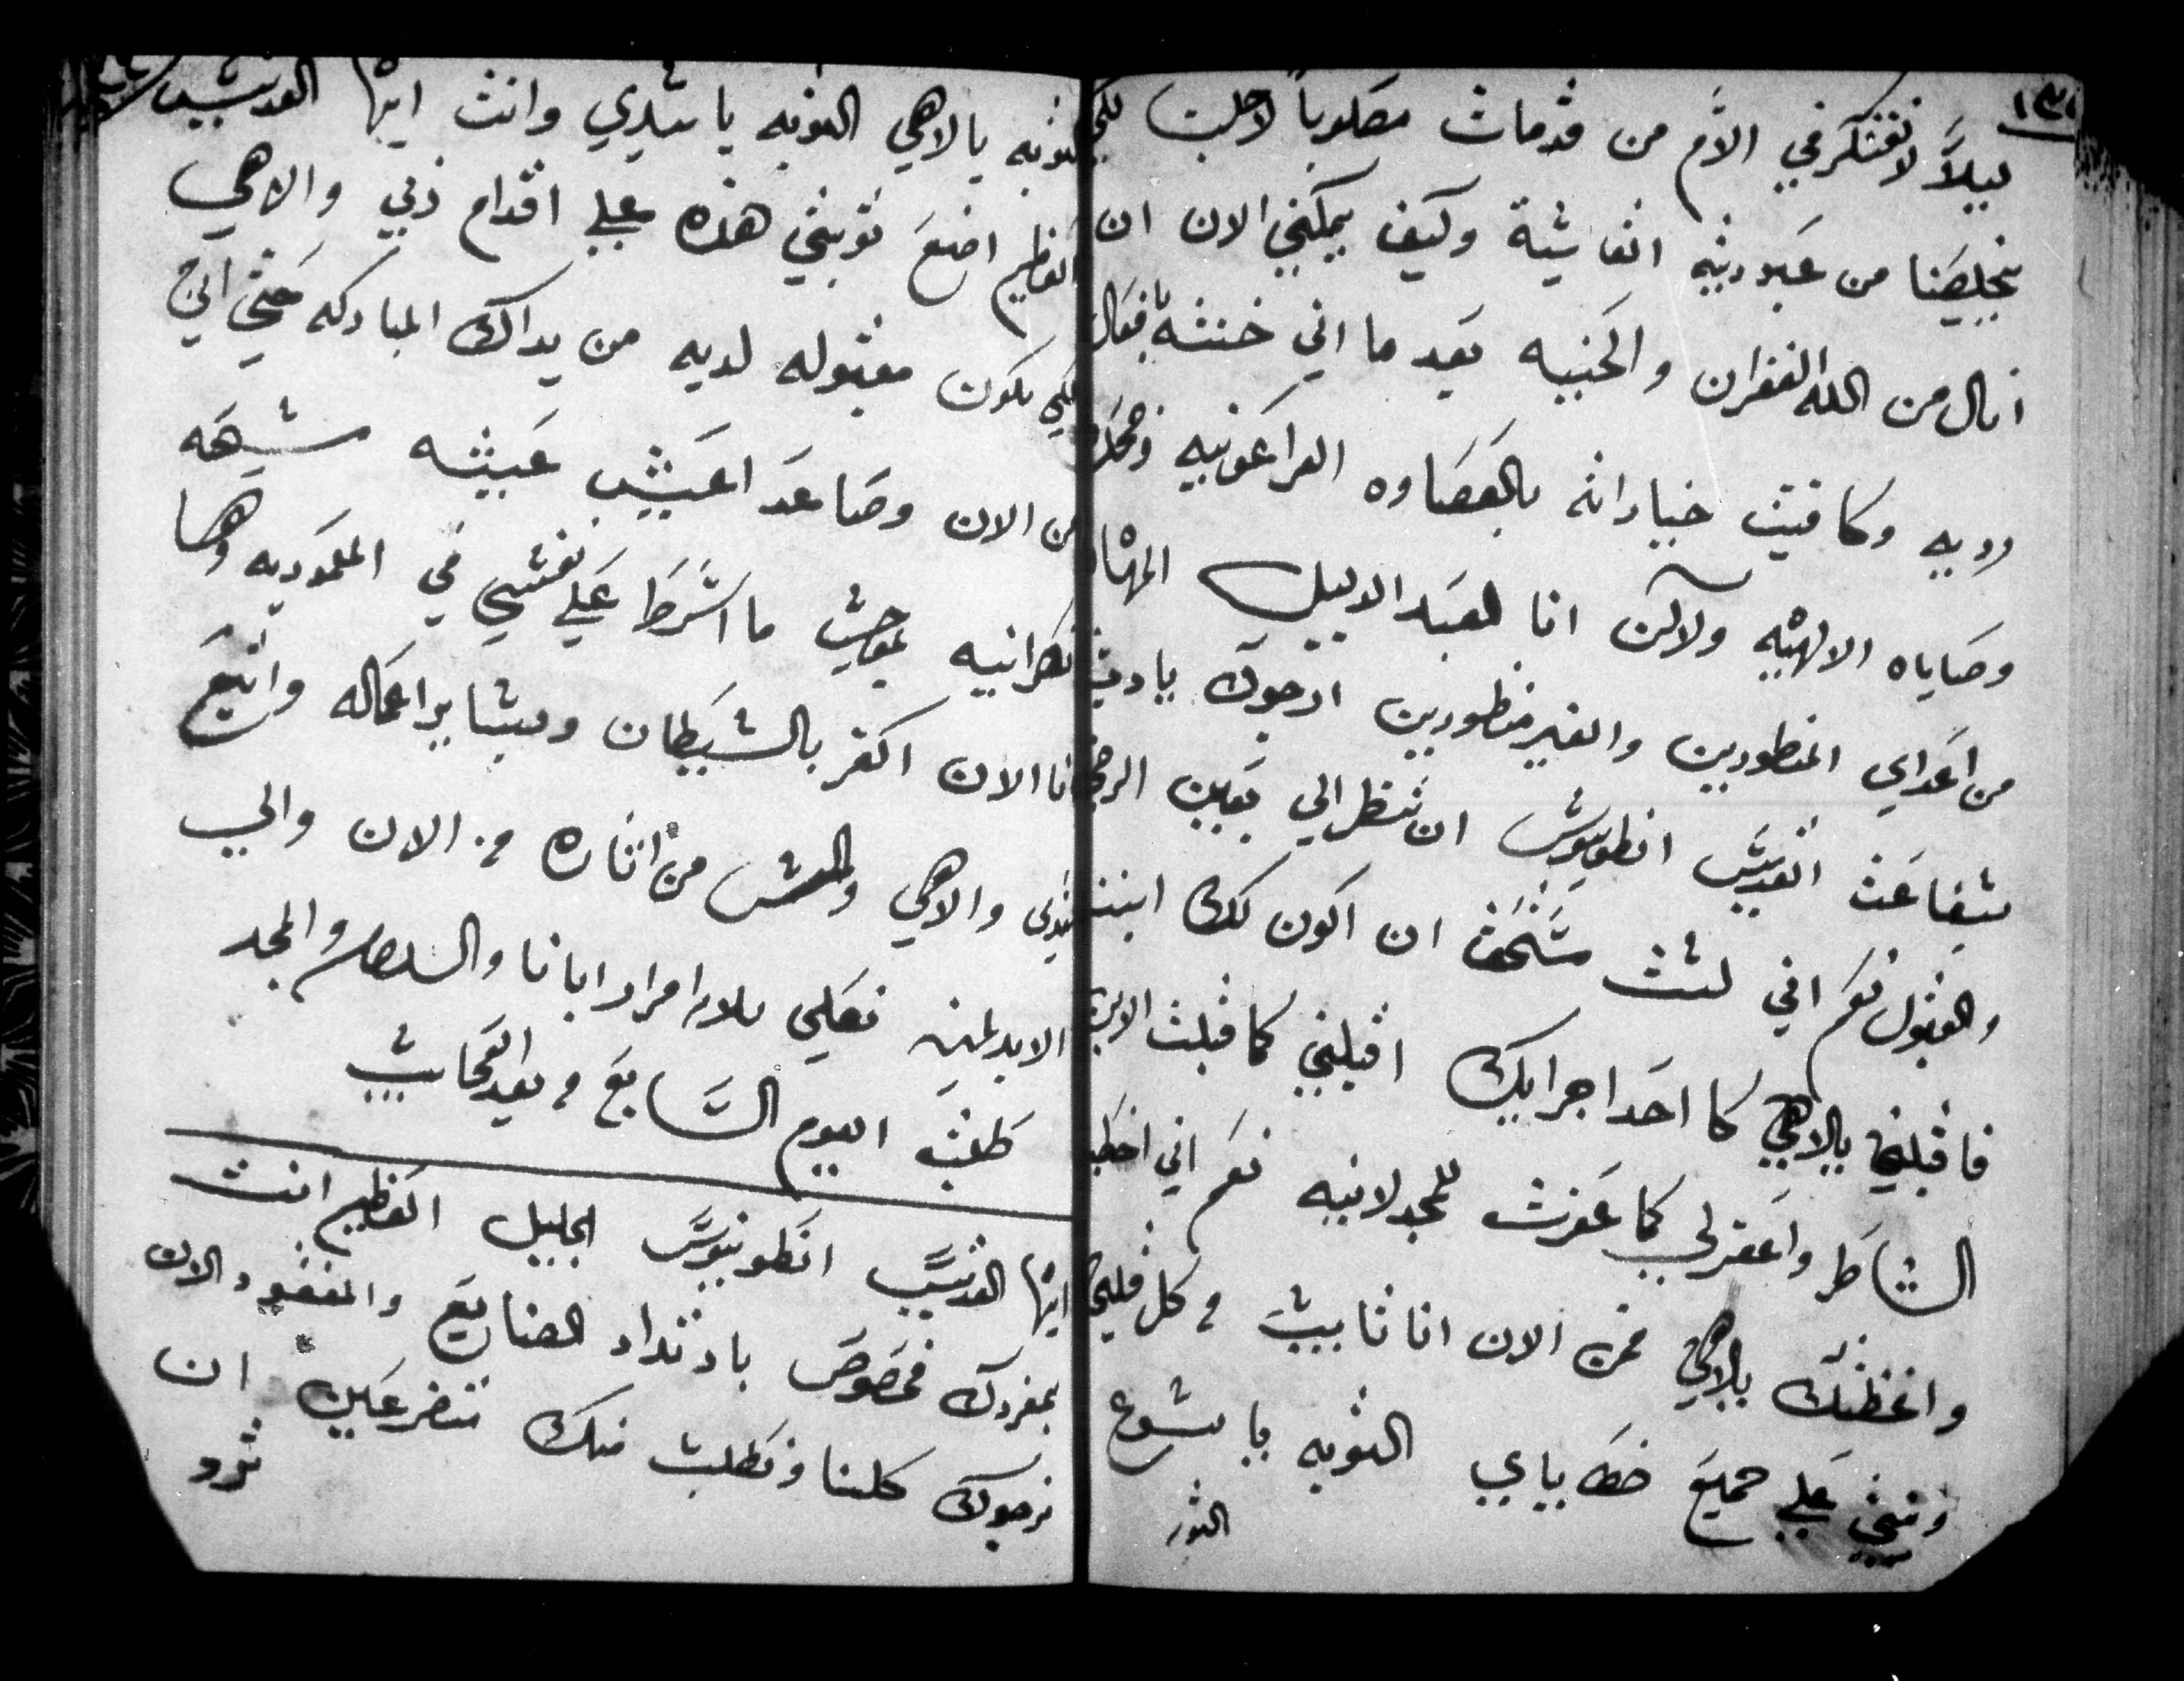 ليلاً لا نفتكر في الآم من قد مات مصلوباً لاجلنا لكي
يخلصنا من عبوديته القاسية وكيف يمكنني الان ان
انال من الله الغفران والمحبه بعد ما اني خنته بافعال
رديه وكافيت خيراته بالقصاوه الفراعونيه
وصاياه الالهيه ولاكن انا العبد الدليل المهان
من اعداي المنظورين والغير منظورين ارجوك يارب
بشفاعت القديس انطونيوس ان تنظر الي بعين الرحمه
والقبول نعم اني لست مستحق ان اكون لك ابنا
فاقبلني يالاهي كا احد اجرايك اقبلني كما قبلت الابن
الشاطر واغفر لي كما غفرت للمجدلانيه نعم اني اخطيت
واغظتك يالاهي فمن الان انا تايب من كل قلبي
وندمي علي جميع خطاياي التوبه يا يسوع
التوبه
التوبه يالاهي التوبه يا سيدي وانت ايها القديس
العظيم اضع توبتي هذه علي اقدام ربي والاهي
لكي تكون مقبوله لديه من يداك المباركه حتي اني
من الان وصاعد اعيش عيشه مسيحيه
نصرانيه بموجب ما اشرط علي نفسي في المعموديه وها
انا الان اكفر بالشيطان وبساير اعماله واتبع
سيدي والاهي والتمس من اثاره من الان والي
الابد امين نصلي ثلاثة امرار ابانا والسلام والمجد
طلبة اليوم السابع من بعد
ايها القديس انطونيوس الجليل العظيم انت
بمفردك مخصوص بارتداد الضايع والمفقود الان
نرجوك كلنا ونطلب منك متضرعين ان
ترد